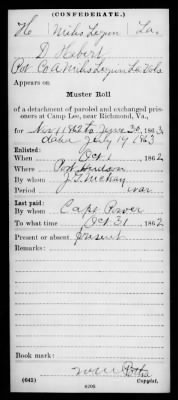 (CONFEDERATE.)
H | Miles Legion | La.
D. Hebert
Pvt Co A Miles Legion La Vols
Appears on
Muster Roll
of a detachment of paroled and exchanged prisoners at Camp Lee, near Richmond, Va.,
for Nov 1 1862 to June 30, 1863
dated July 19 1863
Enlisted:
When Oct 1, 1862
Where Port Hudson
By whom
Period war
Last paid:
By whom Capt.
To what time Oct 31, 1862
Present or absent Present
Remarks:
Book mark:
(642)
Copyist.